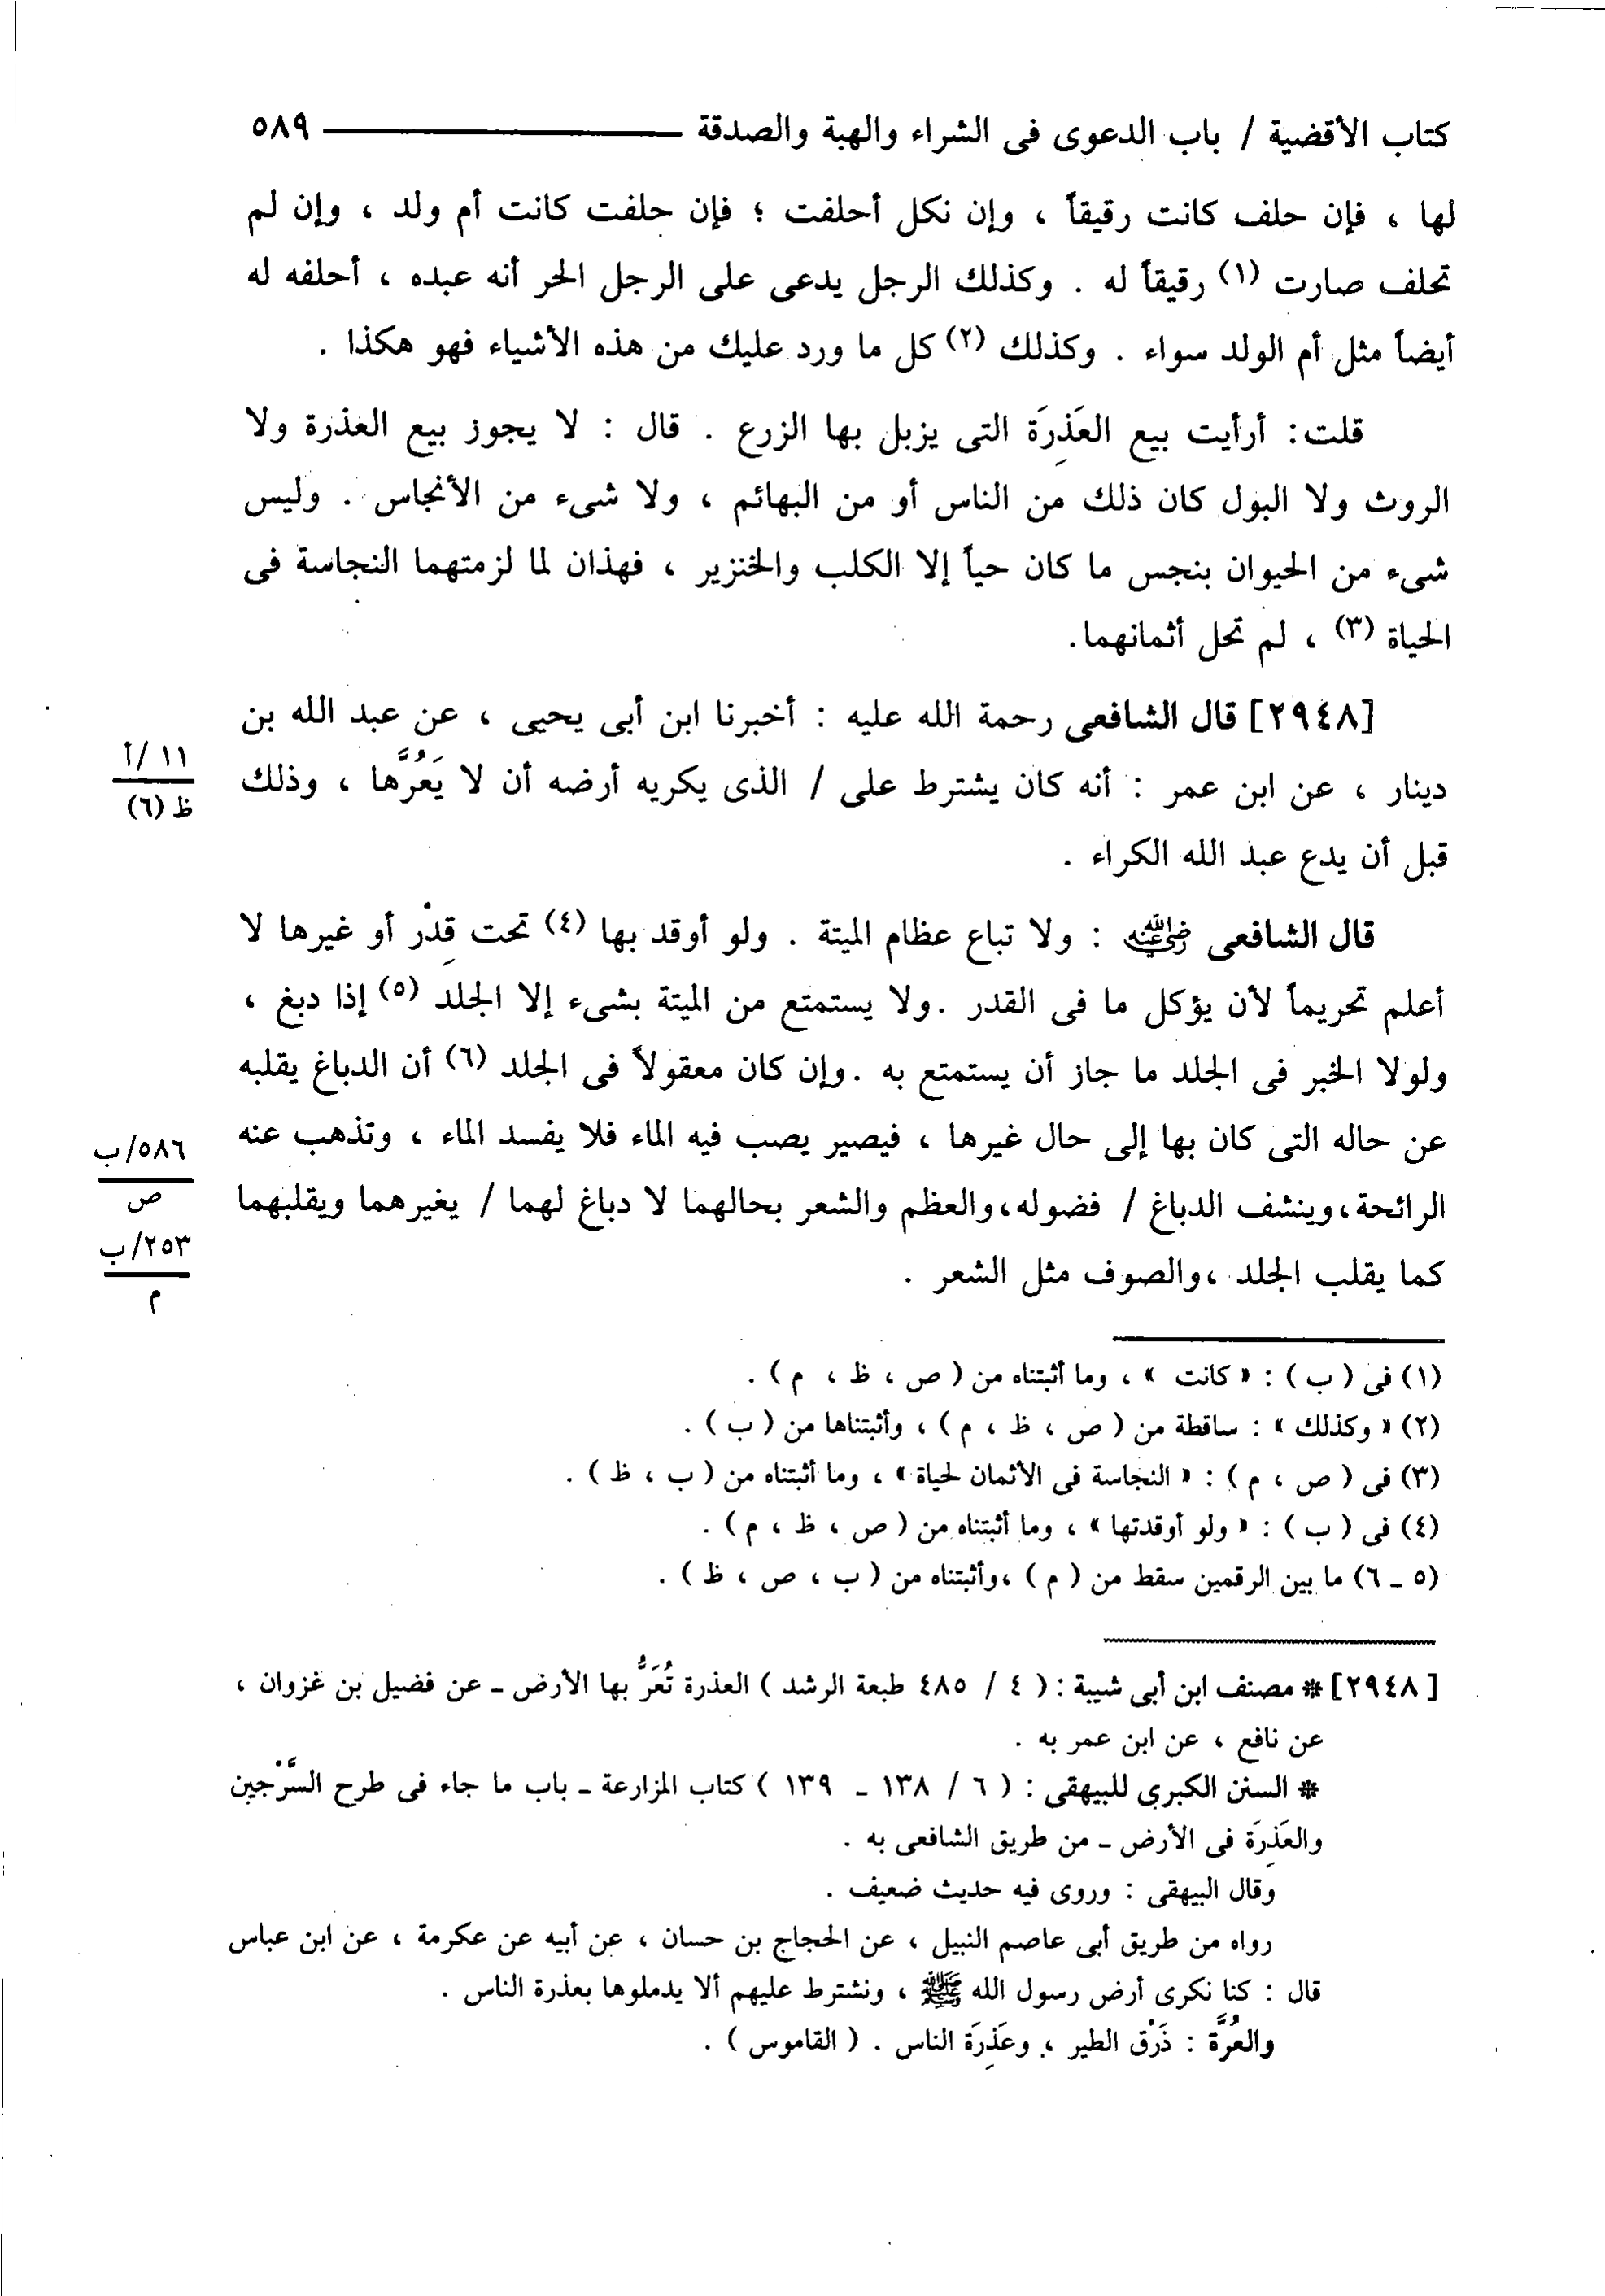 كتاب الأقضية / باب الدعوى فى الشراء والهبة والصدقة ٥٨٩
لها ، فإن حلف كانت رقيقاً ، وإن نكل أحلفت ؛ فإن حلفت كانت أم ولد ، وإن لم
تحلف صارت (١) رقيقاً له . وكذلك الرجل يدعى على الرجل الحر أنه عبده ، أحلفه له
أيضاً مثل أم الولد سواء . وكذلك (٢) كل ما ورد عليك من هذه الأشياء فهو هكذا .
قلت: أرأيت بيع العَذِرَة التى يزبل بها الزرع . قال : لا يجوز بيع العذرة ولا
الروث ولا البول كان ذلك من الناس أو من البهائم ، ولا شىء من الأنجاس . وليس
شىء من الحيوان بنجس ما كان حياً إلا الكلب والخنزير ، فهذان لما لزمتهما النجاسة فى
الحياة (٣) ، لم تحل أثمانهما.
[٢٩٤٨] قال الشافعى رحمة الله عليه : أخبرنا ابن أبى يحيى ، عن عبد الله بن
دينار ، عن ابن عمر : أنه كان يشترط على / الذى يكريه أرضه أن لا يَعُرَّها ، وذلك
١١ /أ
ظ (٦)
قبل أن يدع عبد الله الكراء .
قال الشافعى رضي الله عنه : ولا تباع عظام الميتة . ولو أوقد بها (٤) تحت قِدْر أو غيرها لا
أعلم تحريماً لأن يؤكل ما فى القدر . ولا يستمتع من الميتة بشىء إلا الجلد (٥) إذا دبغ ،
ولولا الخبر فى الجلد ما جاز أن يستمتع به . وإن كان معقولاً فى الجلد (٦) أن الدباغ يقلبه
عن حاله التى كان بها إلى حال غيرها ، فيصير يصب فيه الماء فلا يفسد الماء ، وتذهب عنه
الرائحة، وينشف الدباغ / فضوله، والعظم والشعر بحالهما لا دباغ لهما / يغيرهما ويقلبهما
٥٨٦/ب
ص
٢٥٣/ب
م
كما يقلب الجلد ، والصوف مثل الشعر .
(١) فى ( ب ) : « كانت » ، وما أثبتناه من ( ص ، ظ ، م ) .
(٢) « وكذلك » : ساقطة من ( ص ، ظ ، م ) ، وأثبتناها من ( ب ) .
(٣) فى ( ص ، م ) : « النجاسة فى الأثمان لحياة » ، وما أثبتناه من ( ب ، ظ ) .
(٤) فى ( ب ) : « ولو أوقدتها » ، وما أثبتناه من ( ص ، ظ ، م ) .
(٥ ـ ٦) ما بين الرقمين سقط من ( م ) ، وأثبتناه من ( ب ، ص ، ظ ) .
[٢٩٤٨] * مصنف ابن أبى شيبة : ( ٤ / ٤٨٥ طبعة الرشد ) العذرة تُعَرُّ بها الأرض ـ عن فضيل بن غزوان ،
عن نافع ، عن ابن عمر به .
* السنن الكبرى للبيهقى : ( ٦ / ١٣٨ ـ ١٣٩ ) كتاب المزارعة ـ باب ما جاء فى طرح السَّرْجين
والعَذِرَة فى الأرض ـ من طريق الشافعى به .
وقال البيهقى : وروى فيه حديث ضعيف .
رواه من طريق أبى عاصم النبيل ، عن الحجاج بن حسان ، عن أبيه عن عكرمة ، عن ابن عباس
قال : كنا نكرى أرض رسول الله ﷺ ، ونشترط عليهم ألا يدملوها بعذرة الناس .
والعُرَّة : ذَرْق الطير ، وعَذِرَة الناس . ( القاموس ) .